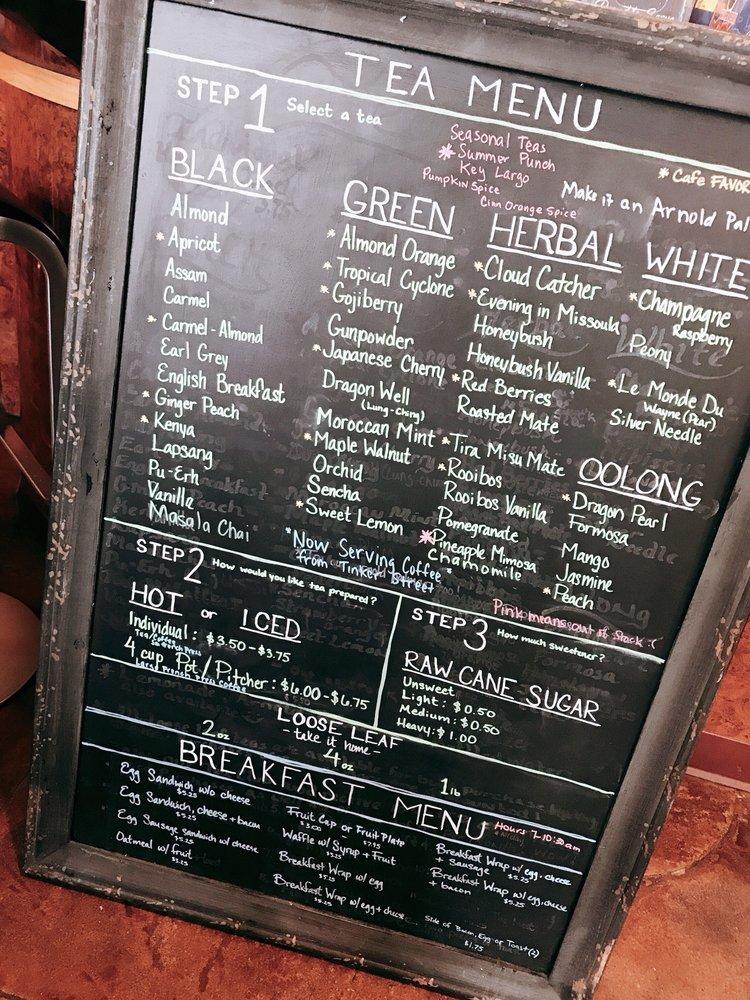 TEA MENU
STEP 1 Select a tea
Seasonal Teas
* Summer Punch
Key Largo
Pumpkin Spice
Cinn Orange Spice
* Cafe FAVOR
Make it an Arnold Pal
BLACK
Almond
* Apricot
Assam
Carmel
* Carmel-Almond
Earl Grey
English Breakfast
* Ginger Peach
* Kenya
Lapsang
Pu-Erh
Vanilla
Masala Chai
GREEN
* Almond Orange
* Tropical Cyclone
* Gojiberry
Gunpowder
* Japanese Cherry
Dragon Well
(Lung-Ching)
Moroccan Mint
* Maple Walnut
Orchid
Sencha
* Sweet Lemon
HERBAL
* Cloud Catcher
* Evening in Missoula
Honeybush
Honeybush Vanilla
* Red Berries
Roasted Mate
* Tira Misu Mate
* Rooibos
Rooibos Vanilla
Pomegranate
* Pineapple Mimosa
Chamomile
WHITE
* Champagne
Raspberry
Peony
* Le Monde Du
Wayne (Pear)
Silver Needle
OOLONG
* Dragon Pearl
Formosa
Mango
Jasmine
* Peach
*Now Serving Coffee
from Tinker Street*
Pink means out of stock :(
STEP 2 How would you like tea prepared?
HOT or ICED
Individual: $3.50-$3.75
Tea/Coffee
4 cup Pot/Pitcher: $6.00-$6.75
Large french press coffee
STEP 3 How much sweetener?
RAW CANE SUGAR
Unsweet
Light: $0.50
Medium: $0.50
Heavy: $1.00
LOOSE LEAF
- take it home -
2oz 4oz 1lb
BREAKFAST MENU Hours 7-10:30am
Egg Sandwich w/o cheese
$5.25
Egg Sandwich, cheese + bacon
$5.25
Egg Sausage Sandwich w/ cheese
$5.25
Oatmeal w/ fruit
Fruit Cup or Fruit Plate
$3.00 $7.95
Waffle w/ Syrup + Fruit
Breakfast Wrap w/ egg
Breakfast Wrap w/ egg + cheese
Breakfast Wrap w/ egg + cheese
+ Sausage $5.25
Breakfast Wrap w/ egg, cheese
+ bacon $5.25
Side of Bacon, Egg or Toast (2)
$1.75